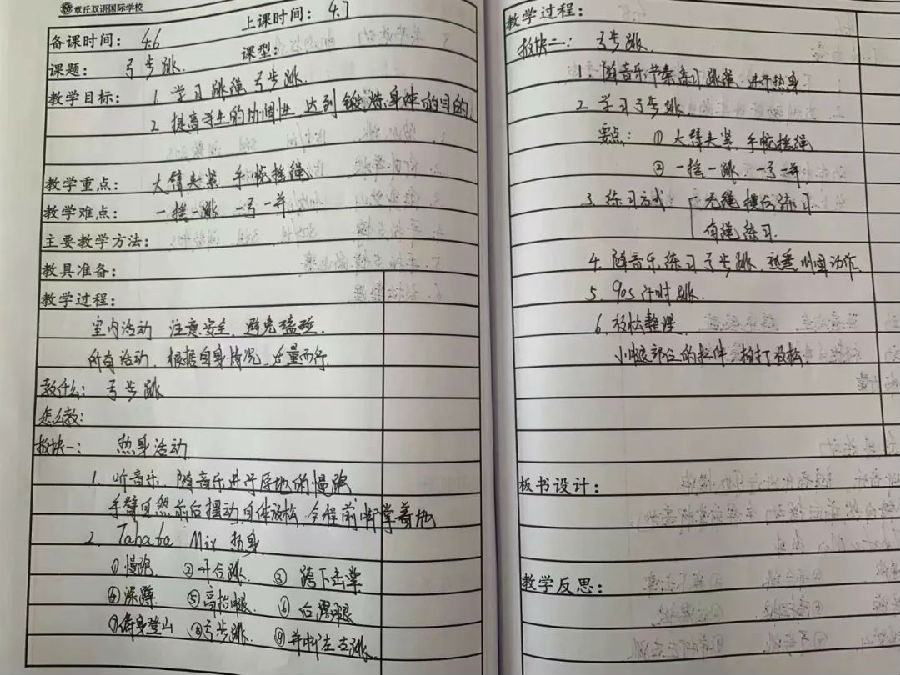 双语国际学校
上课时间: 4.7
备课时间: 4.6
课型:
课题: 弓步跳.
教学目标: 1. 学习跳绳 弓步跳.
2. 提高学生的协调性,达到锻炼身体的目的.
教学重点: 大臂夹紧 手腕摇绳
教学难点: 一摇一跳 一弓一并
主要教学方法:
教具准备:
教学过程:
室内活动 注意安全, 避免碰撞.
所有活动, 根据自身情况, 量力而行
教什么: 弓步跳
怎么教:
板块一: 热身活动
1. 听音乐, 随音乐进行原地的慢跑
手臂自然前后摆动 身体放松, 全程前脚掌着地
2. Tabata Mix 热身
①慢跑. ②开合跳. ③ 跨下击掌
④深蹲 ⑤高抬腿. ⑥
⑦俯身登山 ⑧弓步跳. ⑨并脚左右跳.
教学过程:
板块二: 弓步跳.
1. 随音乐节奏练习跳绳, 进行热身
2. 学习弓步跳
要点: ①大臂夹紧, 手腕摇绳
② 一摇一跳 一弓一并
3. 练习方式 无绳模仿练习
有绳练习.
4. 随音乐练习弓步跳, 熟悉巩固动作.
5. 90s计时跳.
6. 放松整理.
小腿部位的拉伸, 拍打放松.
板书设计:
教学反思: